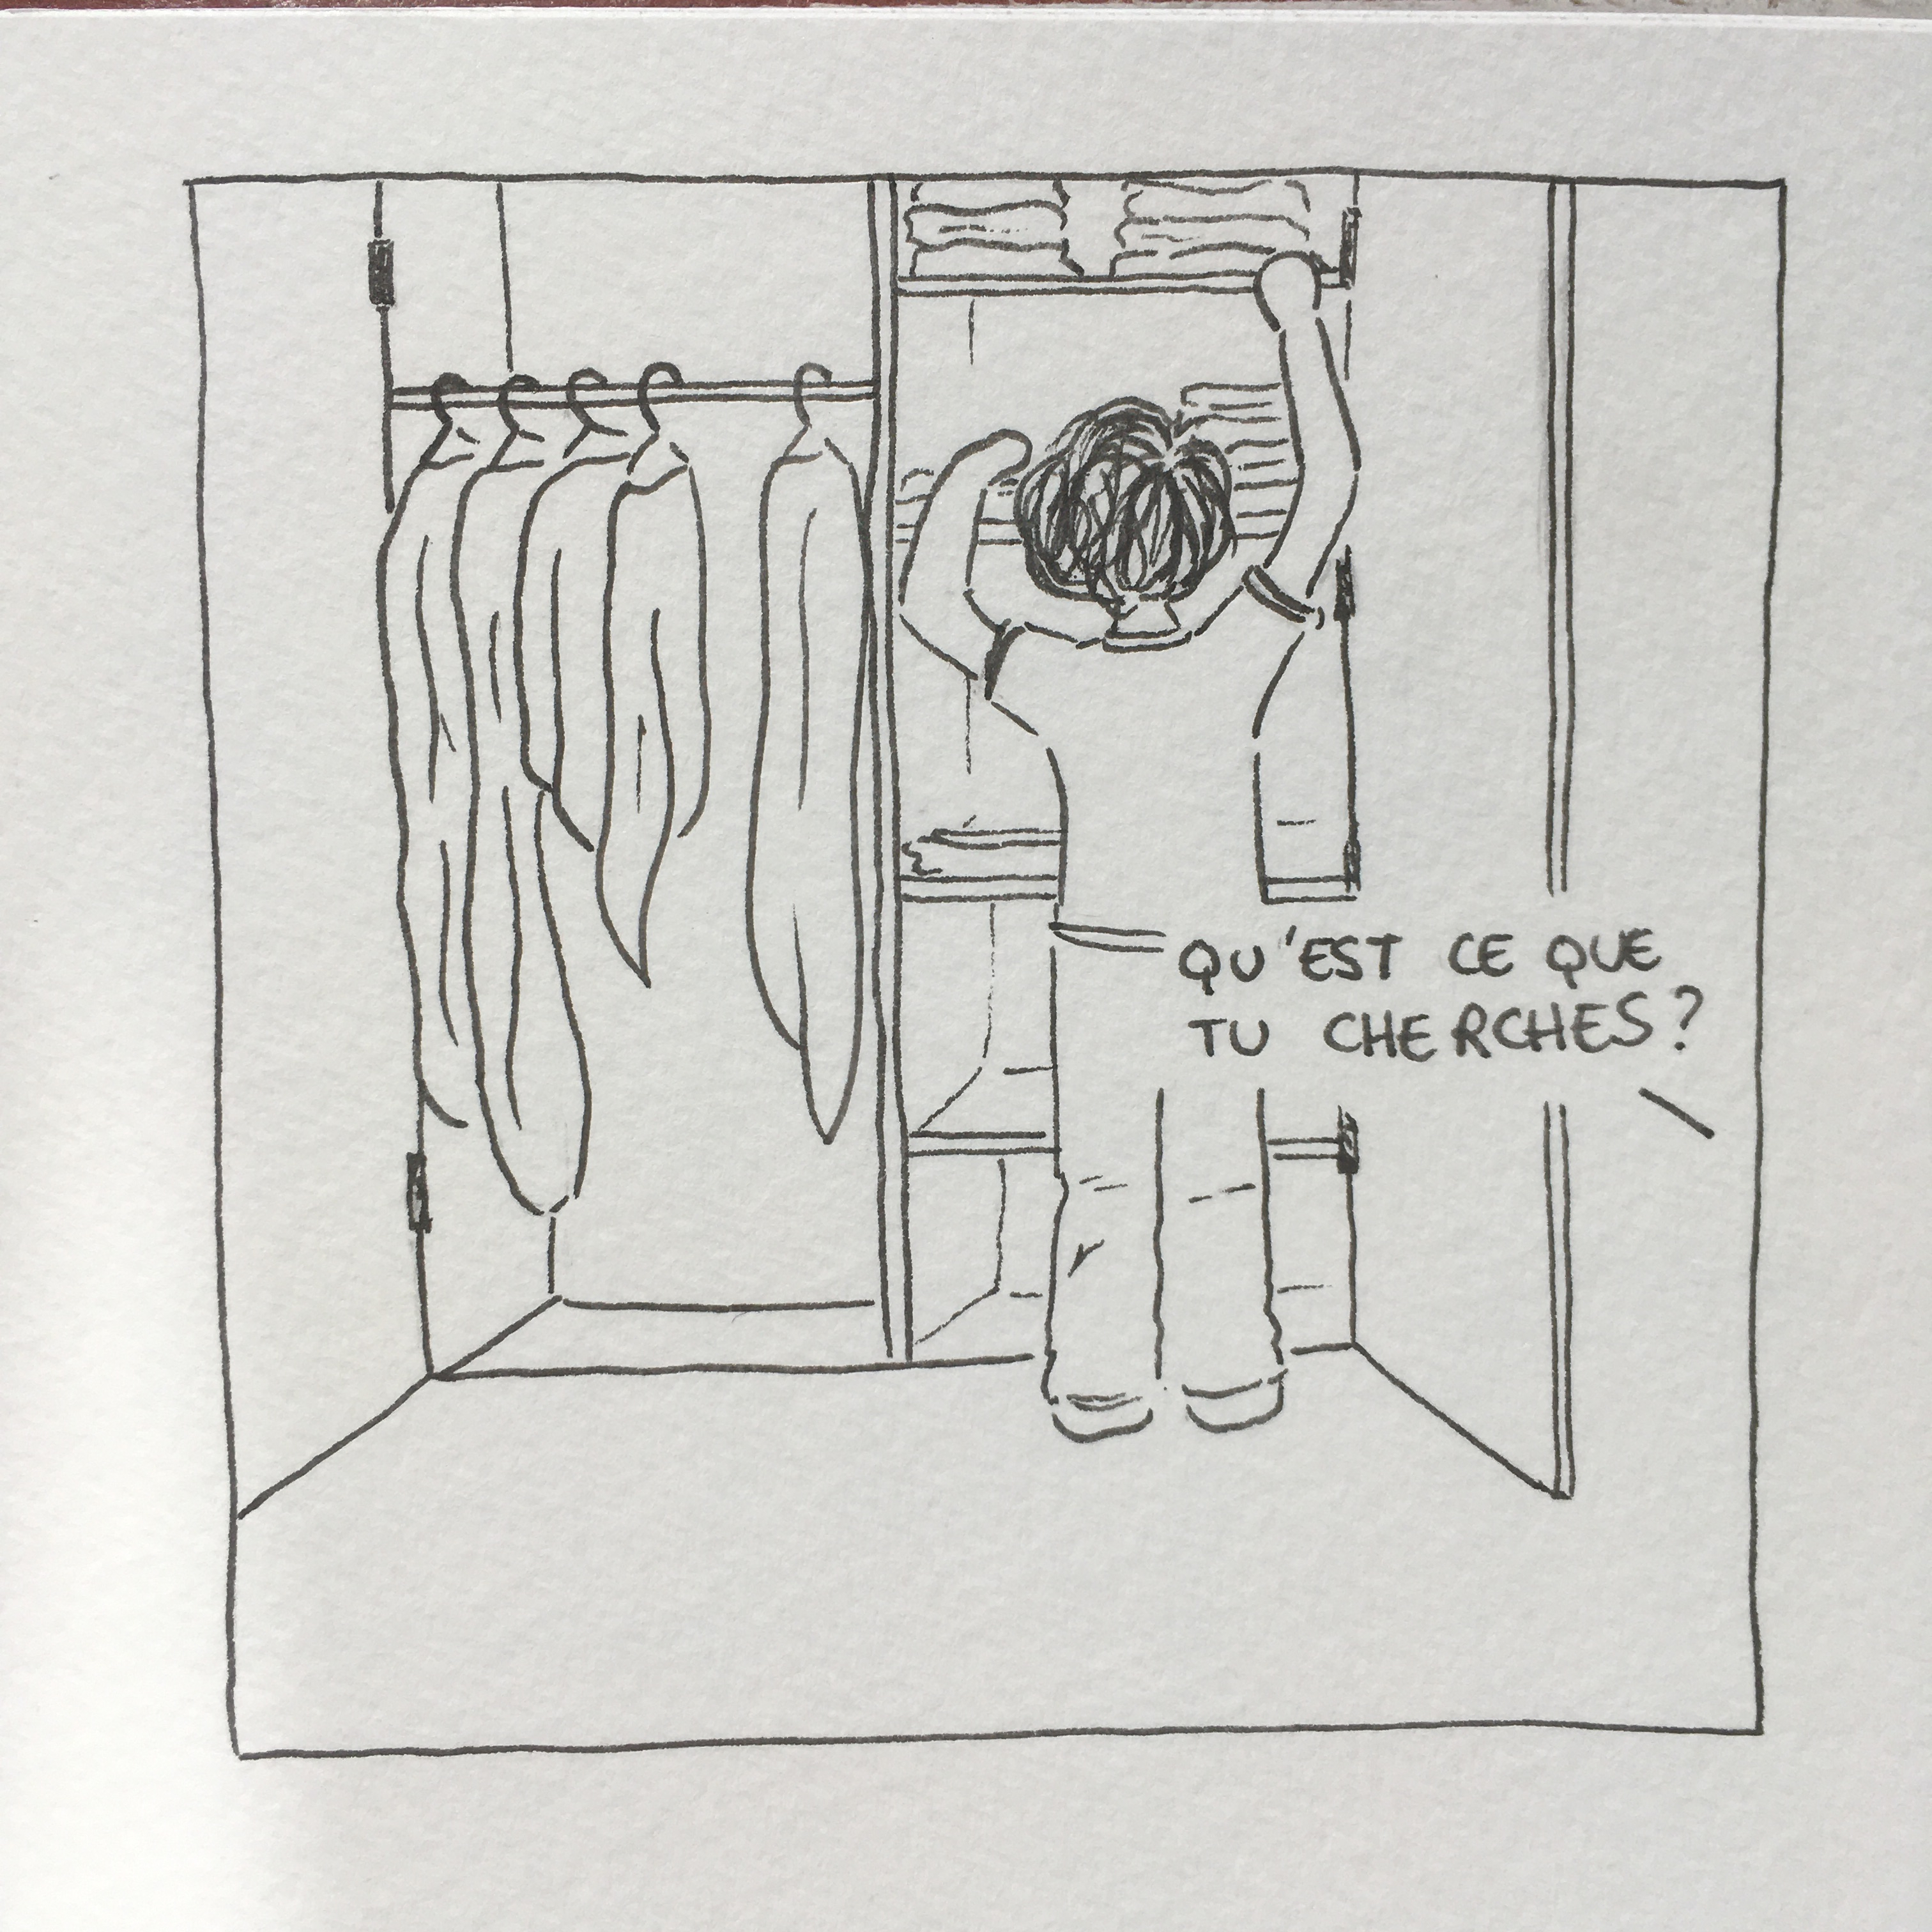 QU'EST CE QUE
TU CHERCHES?